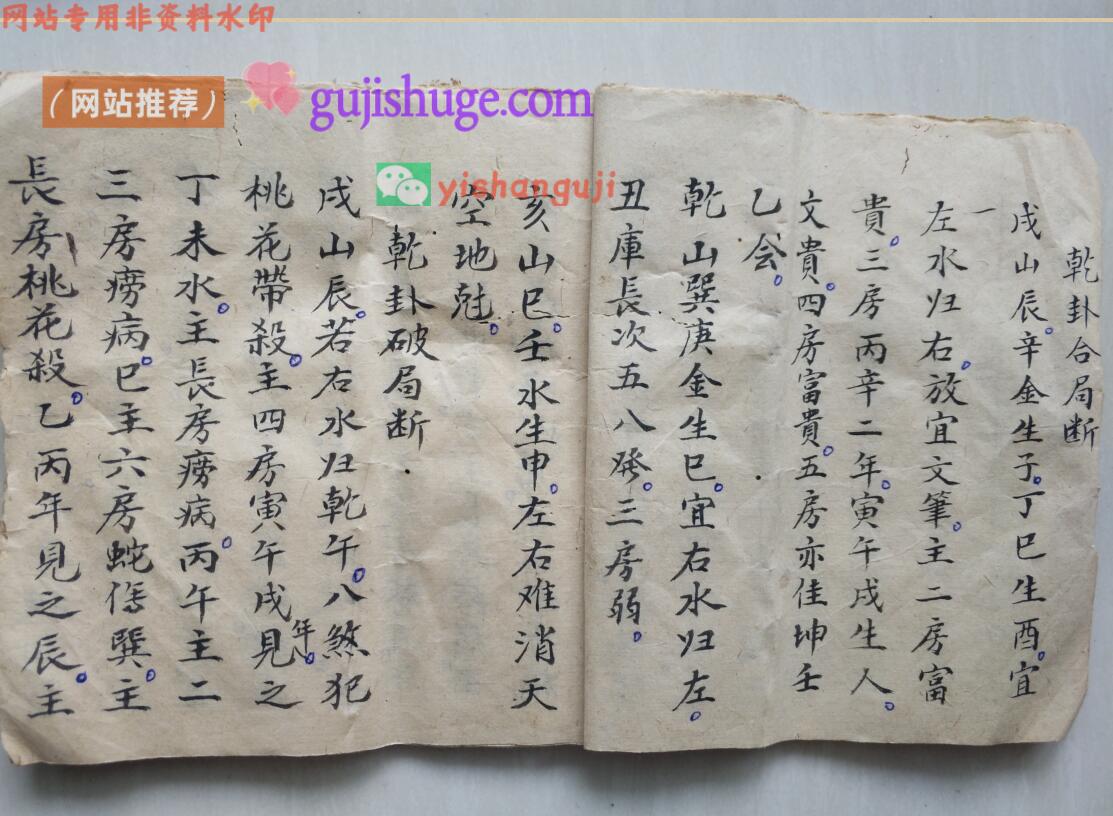 网站专用非资料水印
（网站推荐）
gujishuge.com
yishanguji
乾卦合局断
戌山辰。辛金生子。丁巳生酉。宜
左水归右。放宜文筆。主二房富
貴。三房丙辛二年。寅午戌生人。
文貴。四房富貴。五房亦佳坤壬
乙会。
乾山巽庚金生巳。宜右水归左。
丑庫長次五八發。三房弱。
亥山巳。壬水生申。左右难消天
空地尅。
乾卦破局断
戌山辰。若右水归乾午。八煞犯
桃花帶殺。主四房寅午戌見之
年。
丁未水。主長房痨病。丙午主二
三房痨病。巳主六房蛇傷巽。主
長房桃花殺。乙丙年見之辰。主